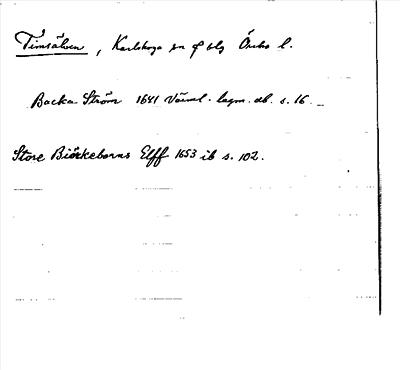 Timsälven, Karlskoga sn o slg Örebro l.
Backa Ström 1641 Värml. lagm. db. s. 16.
Store Biörkeborns Elff 1653 ib s. 102.